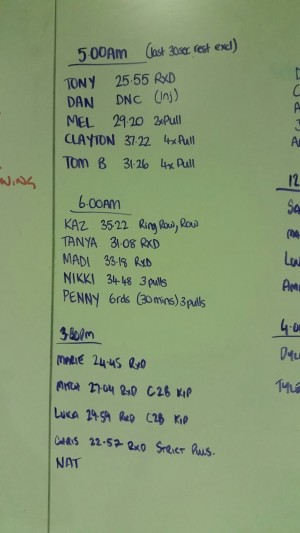 5:00AM (last 30sec rest excl)
TONY 25.55 RXD
DAN DNC (Inj)
MEL 29.20 2xPull
CLAYTON 37.22 4xPull
TOM B 31.26 4xPull
6:00AM
KAZ 35.22 Ring Row, Row
TANYA 31.08 RXD
MADI 33.18 RXD
NIKKI 34.48 3pulls
PENNY 6rds (30mins) 3pulls
3:30PM
MARIE 24.45 RXD
MITCH 27.04 RXD C2B KIP
LUKA 29.59 RXD C2B KIP
CHRIS 22.57 RXD STRICT PULLS.
NAT
NING
12
SA
MA
AM
4:0
DYL
TYLE